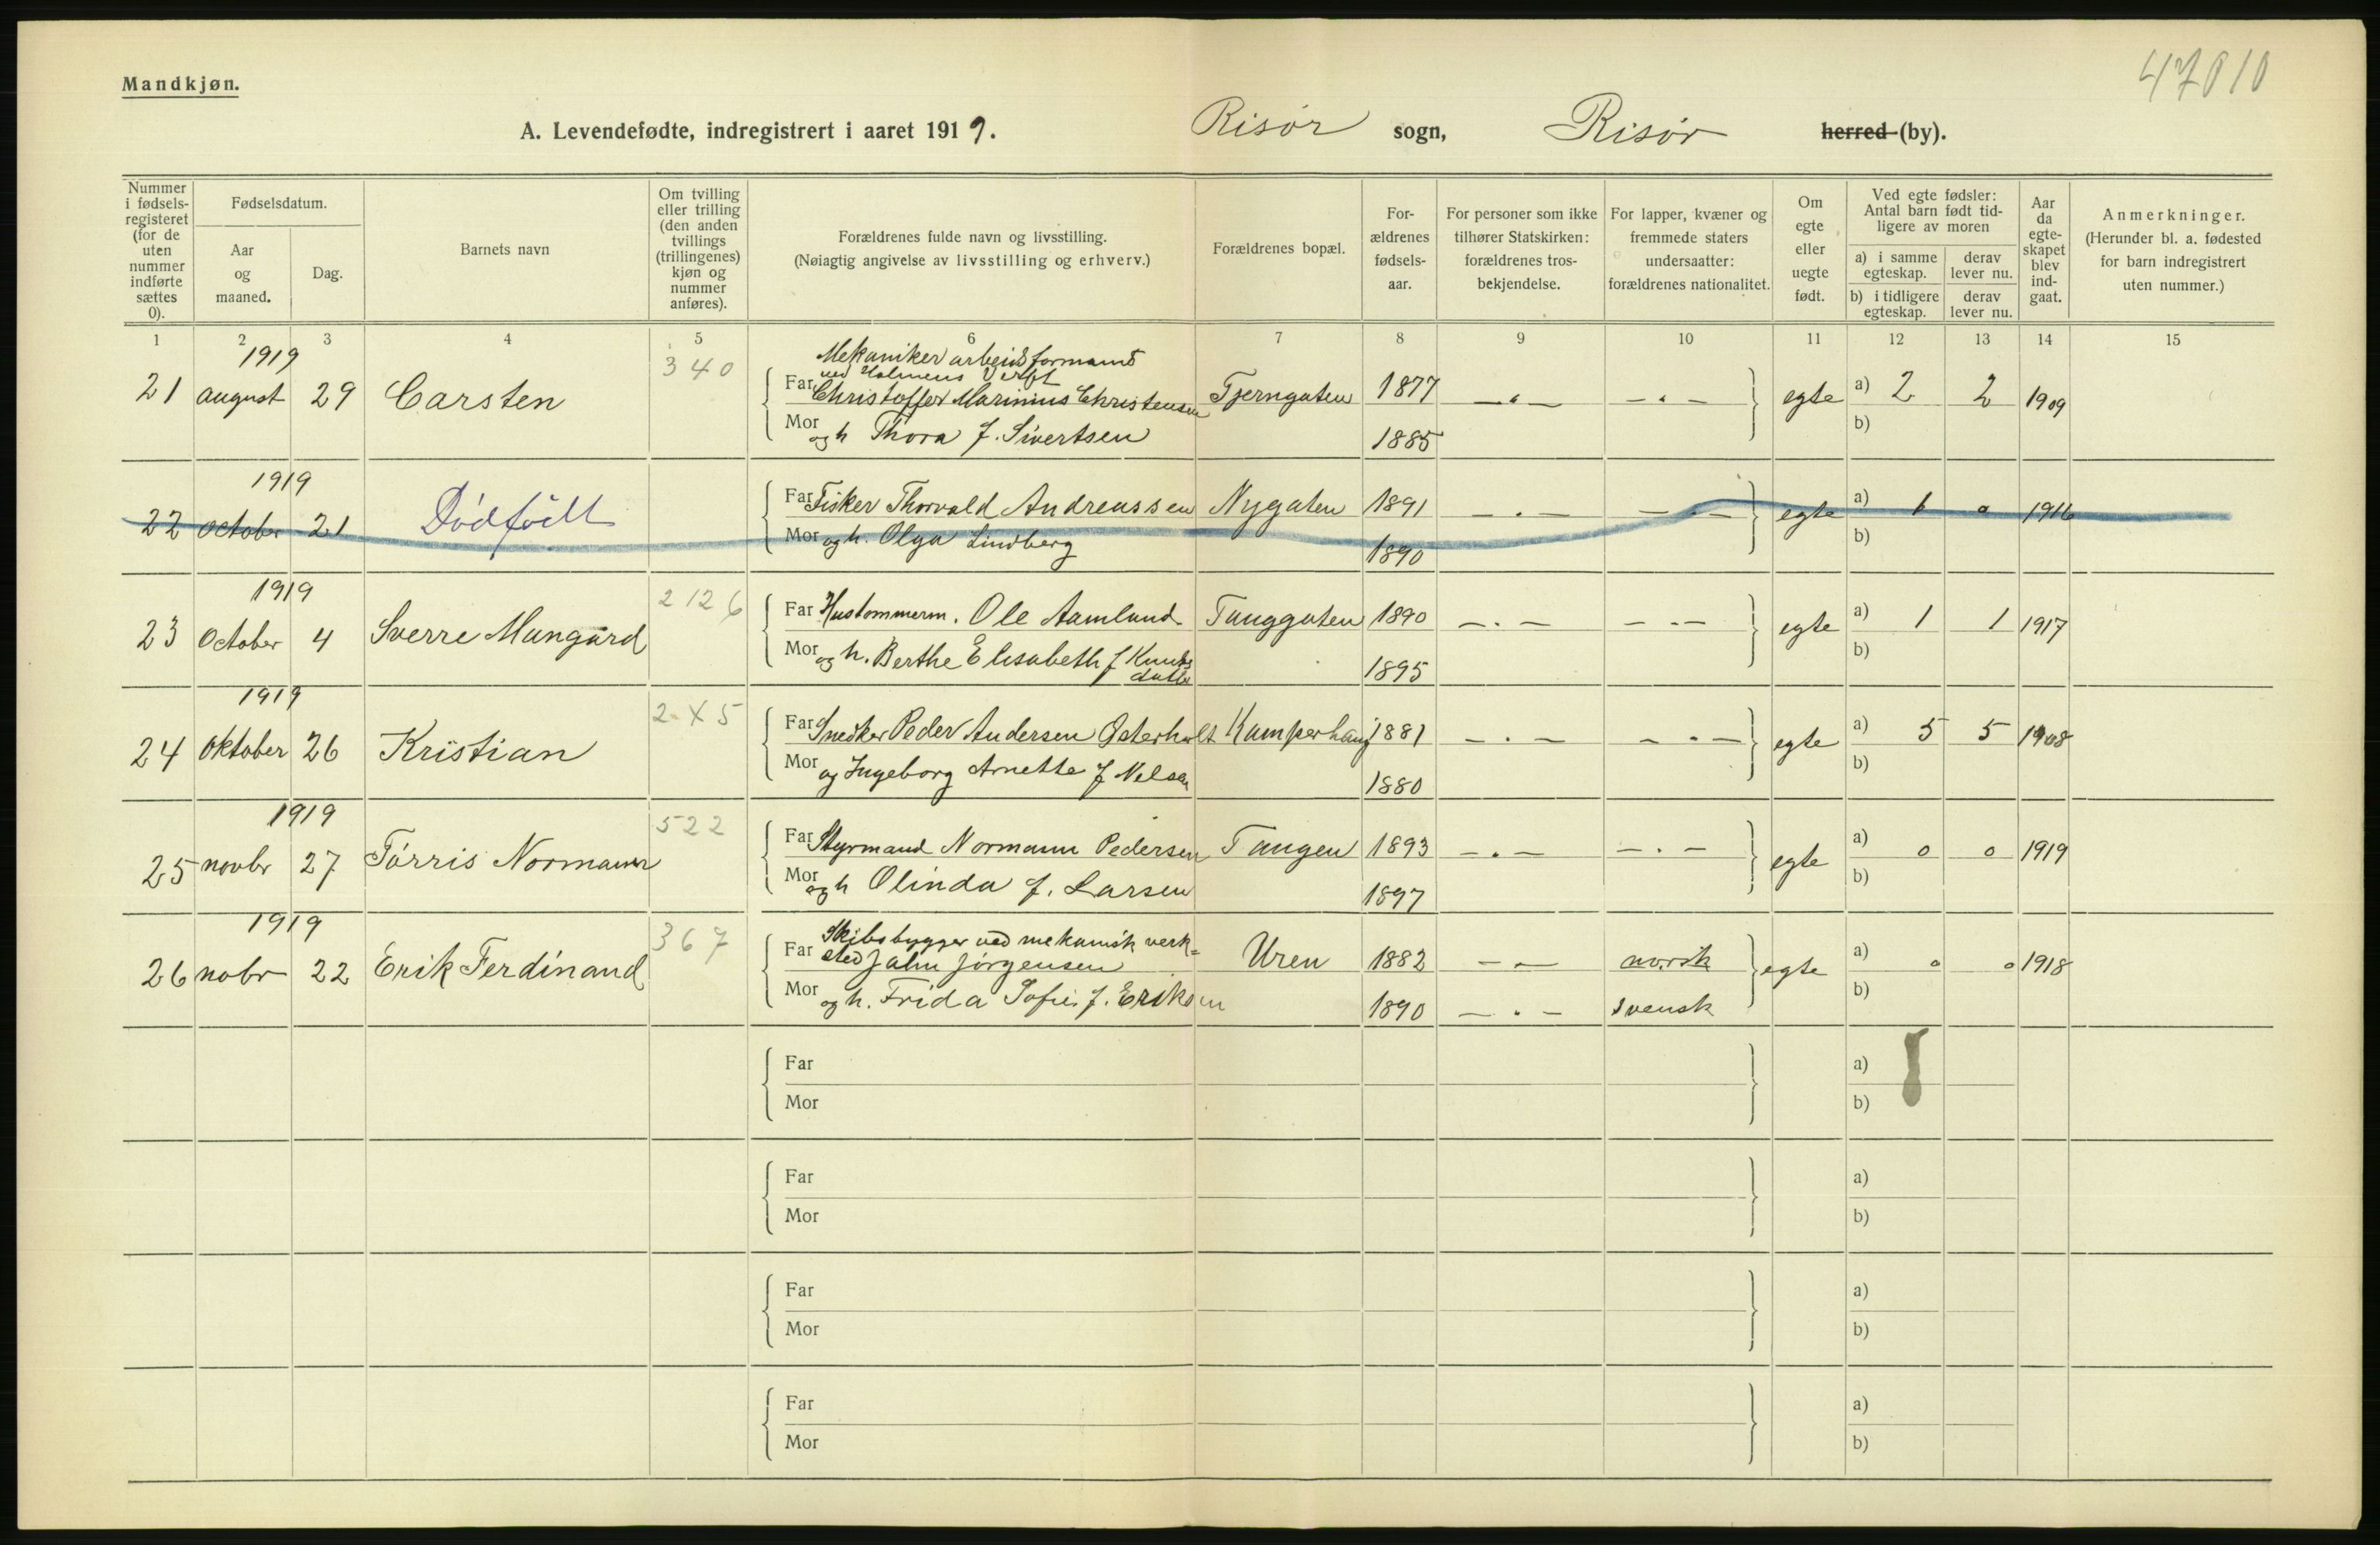 47010
Mandkjøn.
A. Levendefødte, indregistrert i aaret 1919. Risør sogn, Risør herred (by).
Nummer i fødsels-registeret (for de uten nummer indførte sættes 0).
Fødselsdatum.
Aar og maaned.
Dag.
Barnets navn
Om tvilling eller trilling (den anden tvillings (trillingenes) kjøn og nummer anføres).
Forældrenes fulde navn og livsstilling.
(Nøiagtig angivelse av livsstilling og erhverv.)
Forældrenes bopæl.
For-ældrenes fødsels-aar.
For personer som ikke tilhører Statskirken: forældrenes tros-bekjendelse.
For lapper, kvæner og fremmede staters undersaatter: forældrenes nationalitet.
Om egte eller uegte født.
Ved egte fødsler: Antal barn født tid-ligere av moren
a) i samme egteskap.
derav lever nu.
b) i tidligere egteskap.
derav lever nu.
Aar da egte-skapet blev ind-gaat.
Anmerkninger.
(Herunder bl. a. fødested for barn indregistrert uten nummer.)
1 2 3 4 5 6 7 8 9 10 11 12 13 14 15
1919 340 Mekaniker arbeidsformand
ved Holmens Verft
21 august 29 Carsten Far Christoffer Marinius Christensen Tjerngaten 1877 — . — — . — egte a) 2 2 1909
Mor og h Thora f. Sivertsen 1885 b)
1919
22 october 21 Dödfödt Far Fisker Thorvald Andreassen Nygaten 1891 — . — — . — egte a) 1 0 1916
Mor og h. Olga Lindberg 1890 b)
1919 2126
23 October 4 Sverre Mangård Far Hustømmerm. Ole Aamland Tanggaten 1890 — . — — . — egte a) 1 1 1917
Mor og h. Berthe Elisabeth f Knuts
datter 1895 b)
1919 2 X 5
24 Oktober 26 Kristian Far Snedker Peder Andersen Østerholt Kamperhaug 1881 — . — — . — egte a) 5 5 1908
Mor og Ingeborg Arnette f Nelsen 1880 b)
1919 522
25 novbr 27 Tórris Normann Far Styrmand Normann Pedersen Tangen 1893 — . — — . — egte a) 0 0 1919
Mor og h Olinda f. Larsen 1897 b)
1919 367 Skibsbygger ved mekanisk verk=
26 nobr 22 Erik Ferdinand Far sted Jahn Jörgensen Uren 1882 — — norsk egte a) 0 0 1918
Mor og h. Frida Sofie f. Eriksen 1890 — . — svensk b)
Far a)
Mor b)
Far a)
Mor b)
Far a)
Mor b)
Far a)
Mor b)